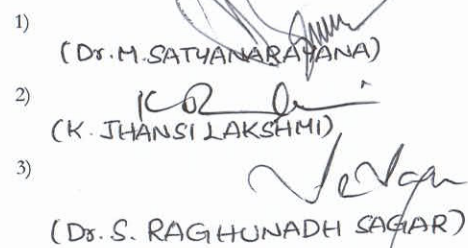 1)
(Dr. M. SATYANARAYANA)
2)
(K. JHANSI LAKSHMI)
3)
(Dr. S. RAGHUNADH SAGAR)